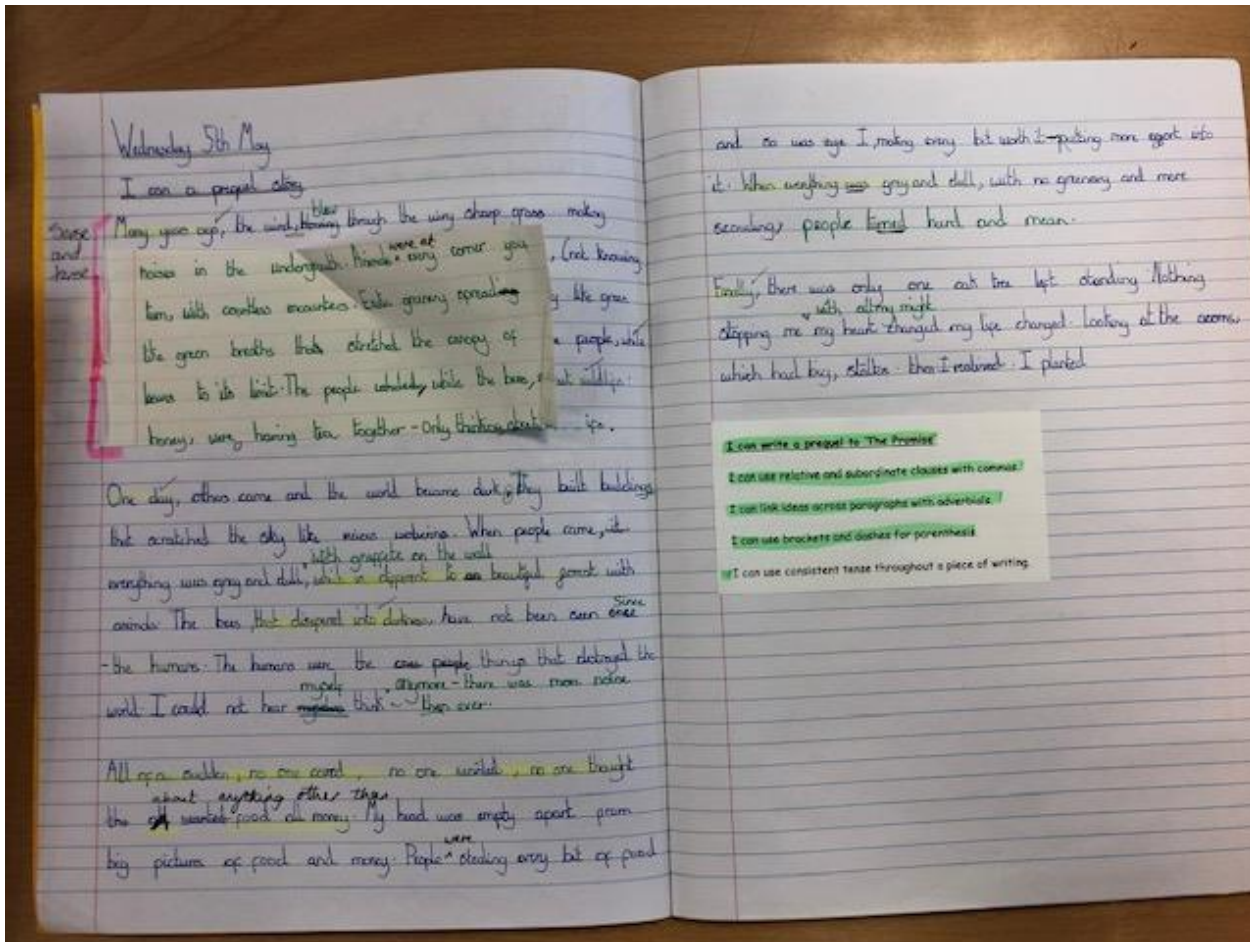 Wednesday 5th May
I can a prequel story
Sense
and
tense
Many years ago, the wind, blew through the wiry sharp grass making
noises in the undergrowth. Friends were at every corner you
turn, with countless encounters. greenery spreading
like green breaths that stretched the canopy of
leaves to its limit. The people whirled, while the bees,
honey, were having tea together - only thinking about
, (not knowing
y like green
people, while
wildlife.
life.
One day, others came and the world became dark; They built buildings
that scratched the sky like vicious wolverine. When people came, it
with graffete on the wall
everything was grey and dull, which is different to a beautiful forest with
animals. The bees, that disapered into darkness, have not been seen since
- the humans. The humans were the people things that destroyed the
world. I could not hear myself think anymore - there was more noise
than ever.
All of a sudden, no one cared, no one smiled, no one thought
about anything other than
the wanted food all money. My head was empty apart from
big pictures of food and money. People were stealing every bit of food
and so was I, making every bit worth it - putting more effort into
it. When everything was grey and dull, with no greenery and more
people turned hard and mean.
Finally, there was only one oak tree left standing. Nothing
with all my might
stopping me my heart changed my life changed. Looking at the acorns,
which had big, stalks. then I realised. I planted
I can write a prequel to 'The Promise'
I can use relative and subordinate clauses with commas.
I can link ideas across paragraphs with adverbials.
I can use brackets and dashes for parenthesis
I can use consistent tense throughout a piece of writing.